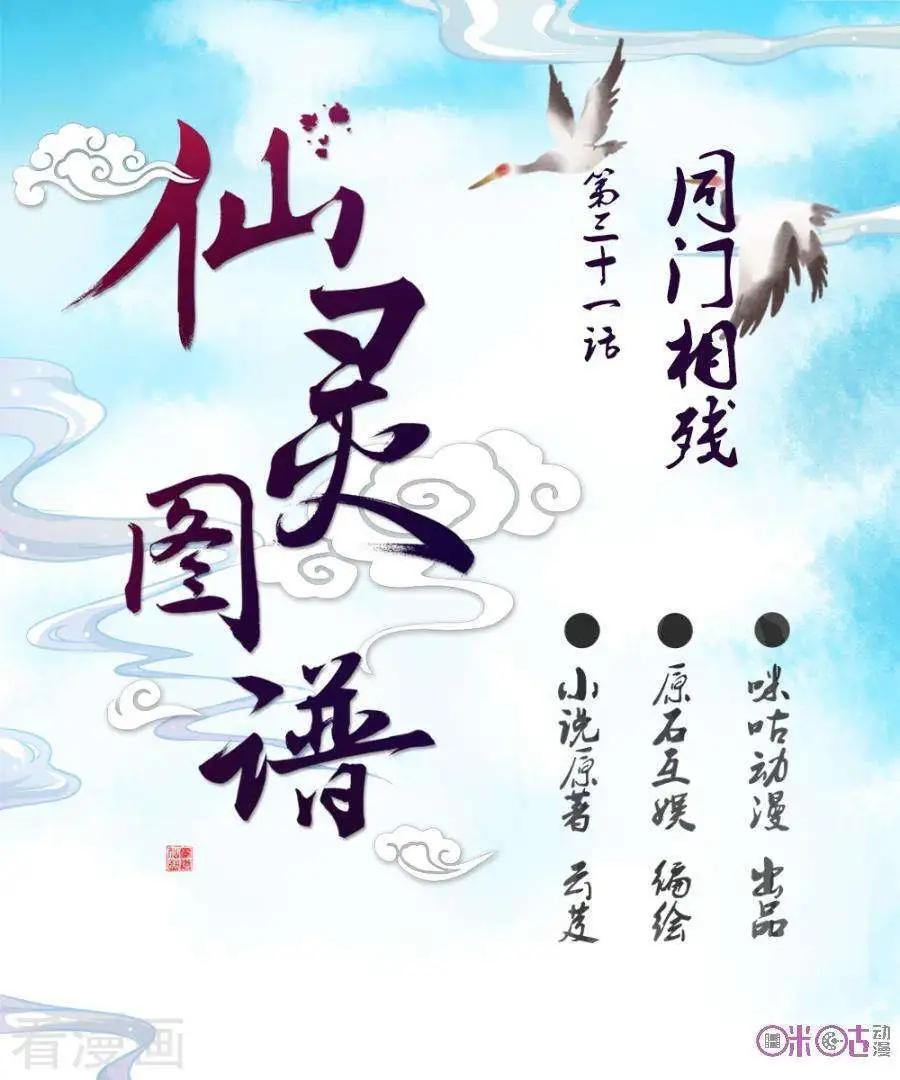 仙灵图谱
第三十一话
同门相残
咪咕动漫 出品
原石互娱 编绘
小说原著 云芨
看漫画
咪咕动漫